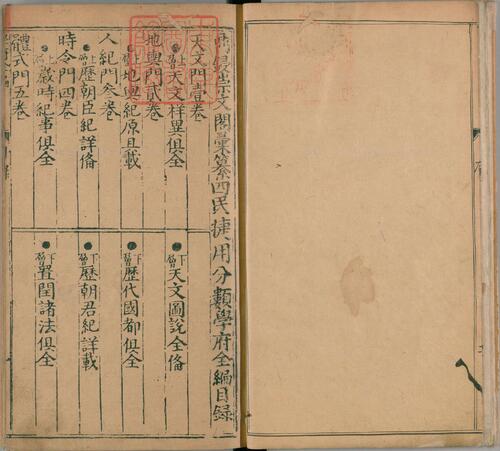 鼎鋟崇文閣彙纂四民捷用分類學府全編目錄
天文門壹卷
上層 天文祥異俱全
下層 天文圖說全備
地輿門貳卷
上層 地輿紀原且載
下層 歷代國都俱全
人紀門叁卷
上層 歷朝臣紀詳備
下層 歷朝君紀詳載
時令門四卷
上層 歲時紀事俱全
下層 置閏諸法俱全
體式門五卷